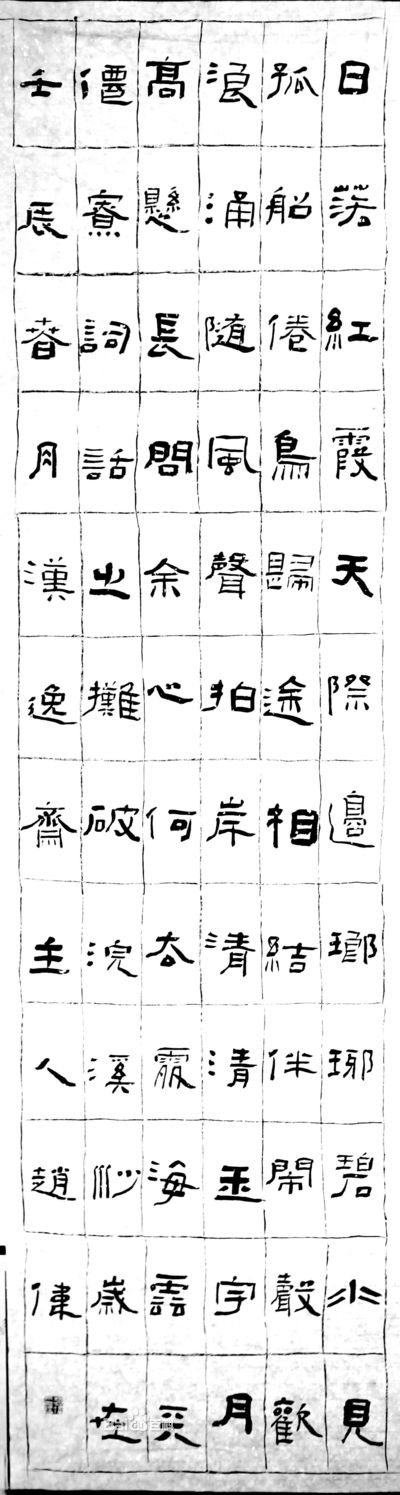 日落紅霞天際邊瑯琊碧水見
孤船倦鳥歸途相結伴鬧聲歡
浪涌随風聲拍岸清清玉宇月
高懸長問余心何去處海雲天
僊寮詞話之攤破浣溪沙歲在
壬辰春月漢逸齋主人趙